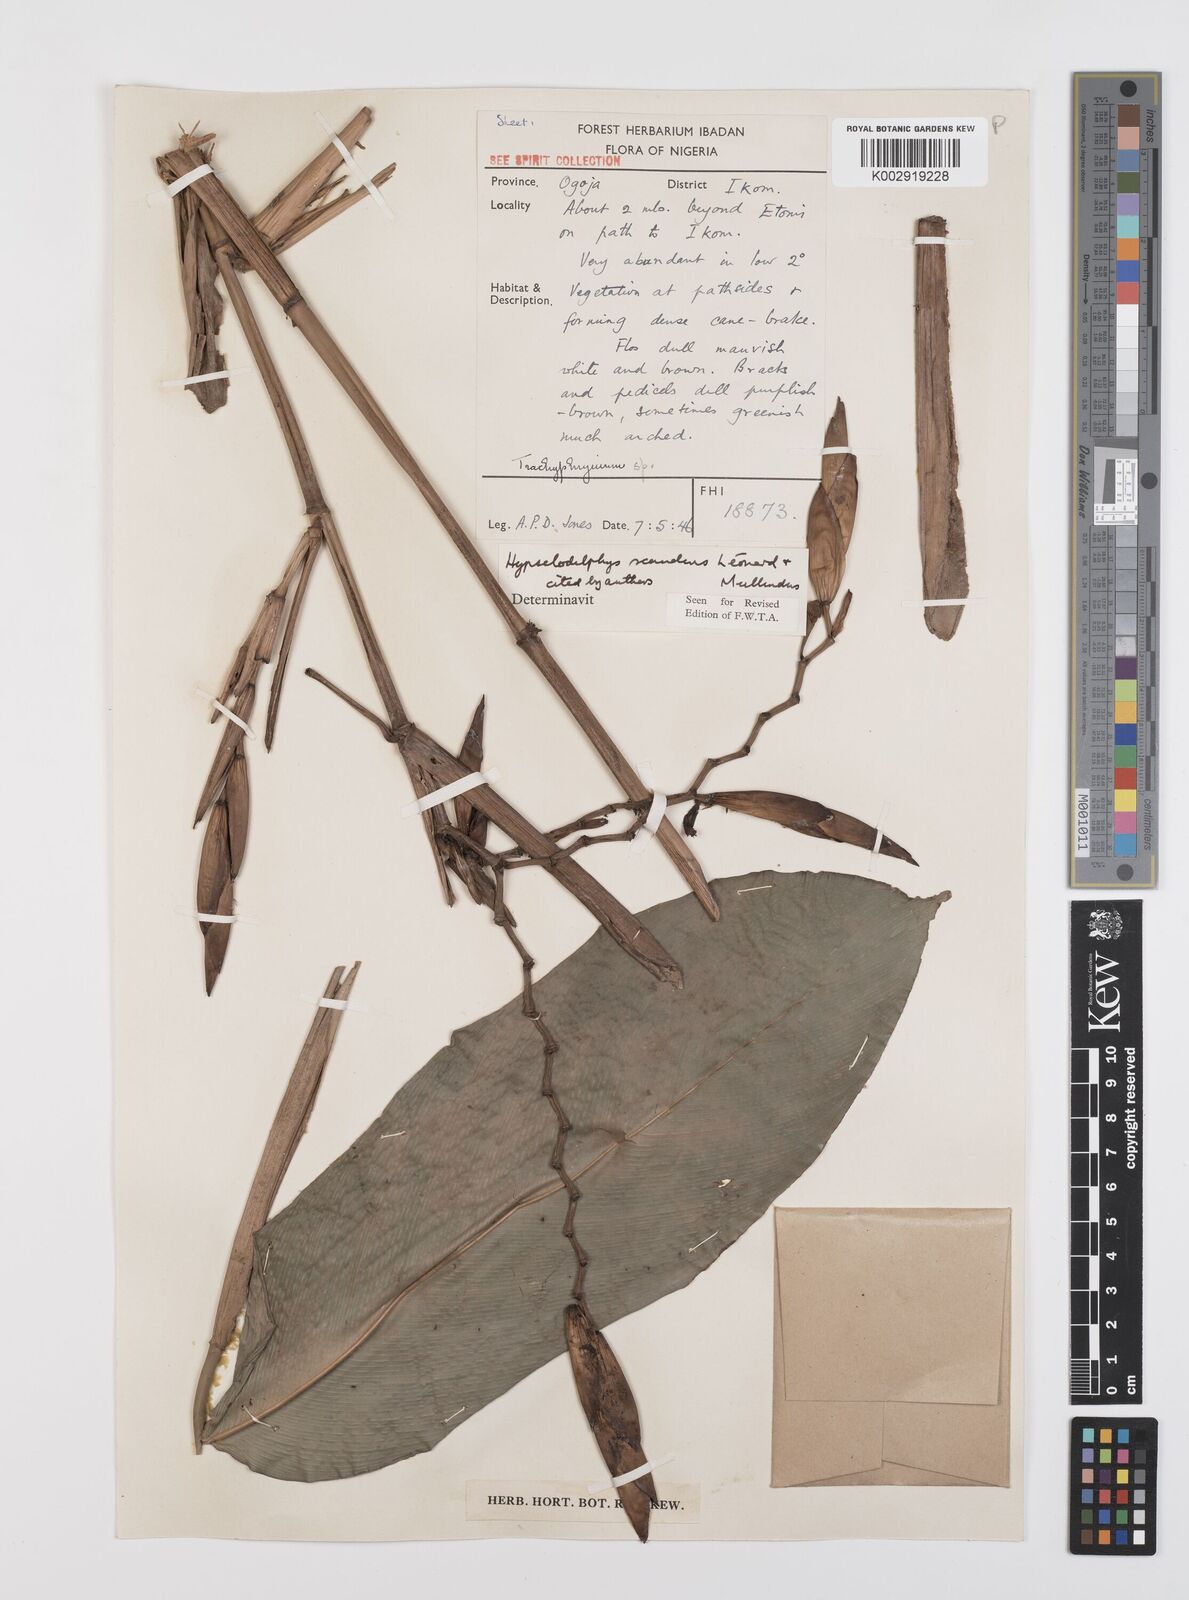 Sheet 1
FOREST HERBARIUM IBADAN
FLORA OF NIGERIA
SEE SPIRIT COLLECTION
Province. Ogoja District Ikom.
Locality About 2 mls. beyond Etomi
on path to Ikom.
Very abundant in low 2°
Habitat &
Description. Vegetation at pathsides &
forming dense cane-brake.
Flos dull mauvish
white and brown. Bracts
and pedicels dull purplish
-brown, sometimes greenish
much arched.
Trachyphrynium sp.
FHI
18873.
Leg. A.P.D. Jones Date. 7:5:46
Hypselodelphys scandens Léonard &
cited by authors Mullenders
Determinavit
Seen for Revised
Edition of F.W.T.A.
ROYAL BOTANIC GARDENS KEW
K002919228
P
HERB. HORT. BOT. REG. KEW.
inches
centimetres
Density
Don Williams
M001011
Kew
Royal Botanic Gardens
copyright reserved
10 9 8 7 6 5 4 3 2 1 0 cm